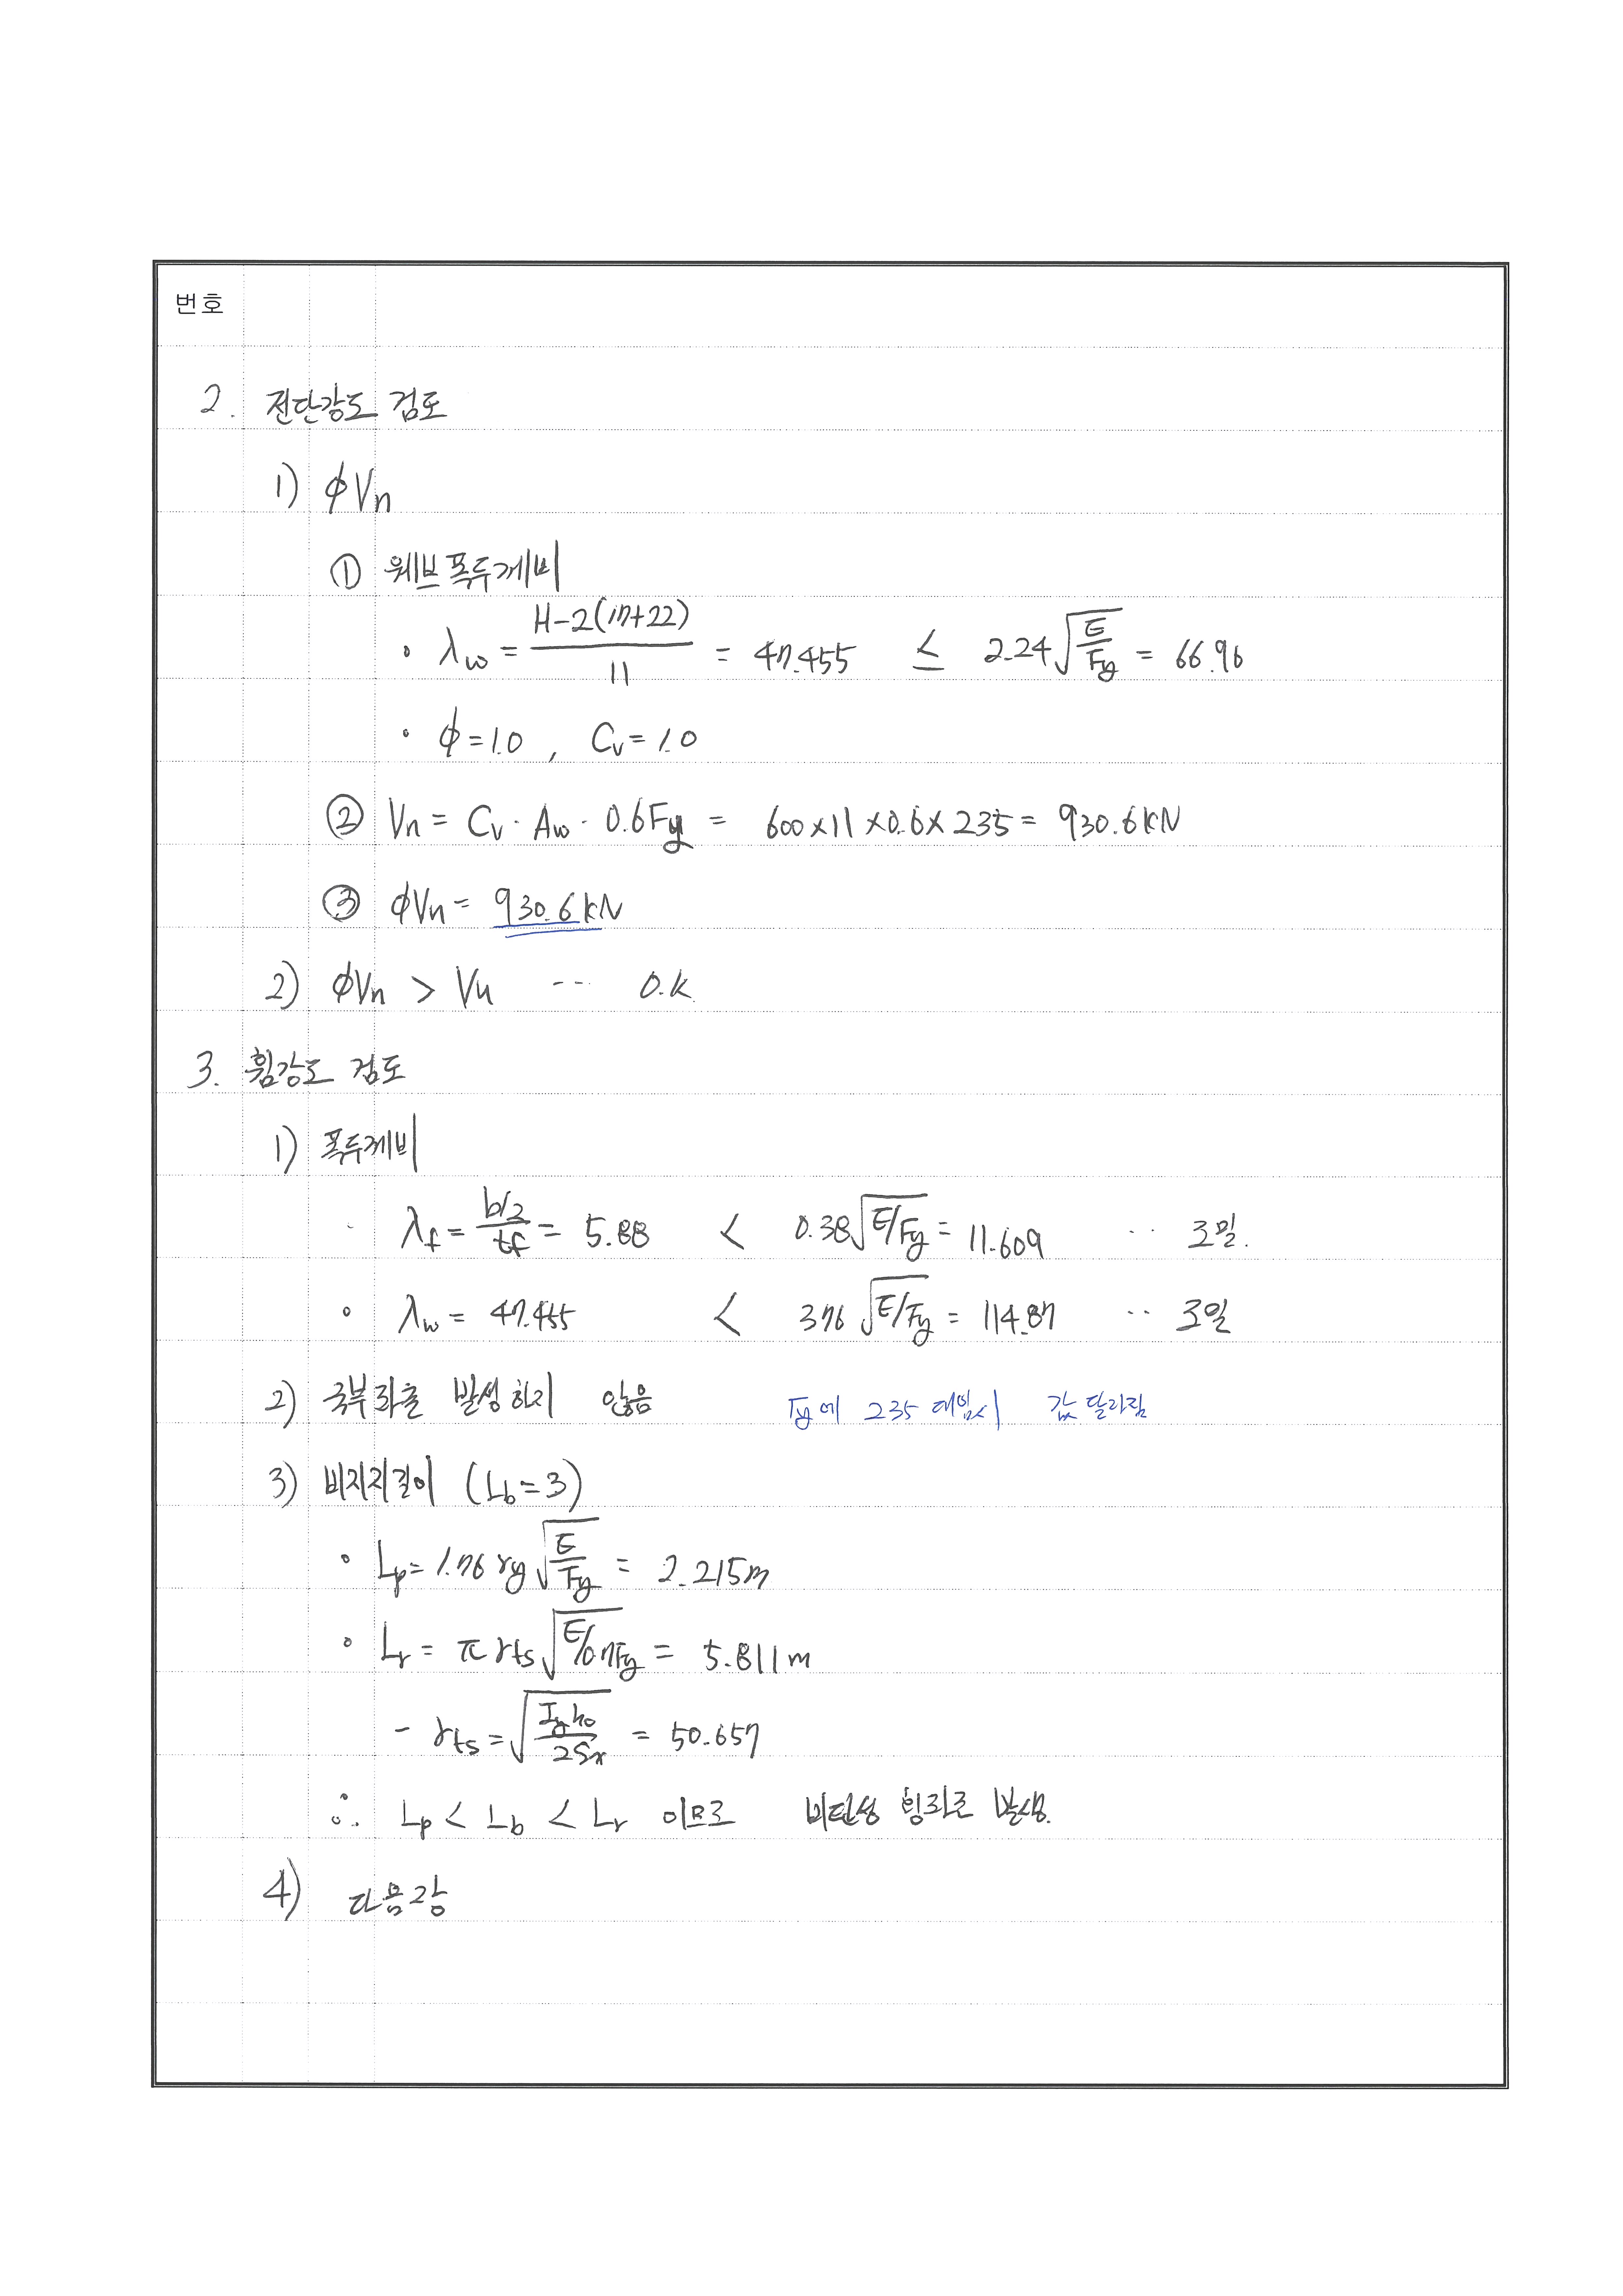 번호
2. 전단강도 검토
1) φVn
① 웨브폭두께비
• λw = H-2(17+22) / 11 = 47.455 ≤ 2.24√(E/Fy) = 66.96
• φ=1.0 , Cv=1.0
② Vn = Cv · Aw · 0.6Fy = 600×11×0.6×235 = 930.6kN
③ φVn = 930.6kN
2) φVn > Vu --- O.K.
3. 휨강도 검토
1) 폭두께비
· λf = (b/2)/tf = 5.88 < 0.38√(E/Fy) = 11.609 ·· 조밀.
• λw = 47.455 < 3.76√(E/Fy) = 114.87 ·· 조밀
2) 국부좌굴 발생하지 않음 Fy에 235 대입시 값 달라짐
3) 비지지길이 (Lb=3)
• Lp = 1.76 ry√(E/Fy) = 2.215m
• Lr = π rts√(E/0.7Fy) = 5.811m
- rts = √(Iy ho / 2Sx) = 50.657
∴ Lp < Lb < Lr 이므로 비탄성 횡좌굴 발생.
4) 다음장